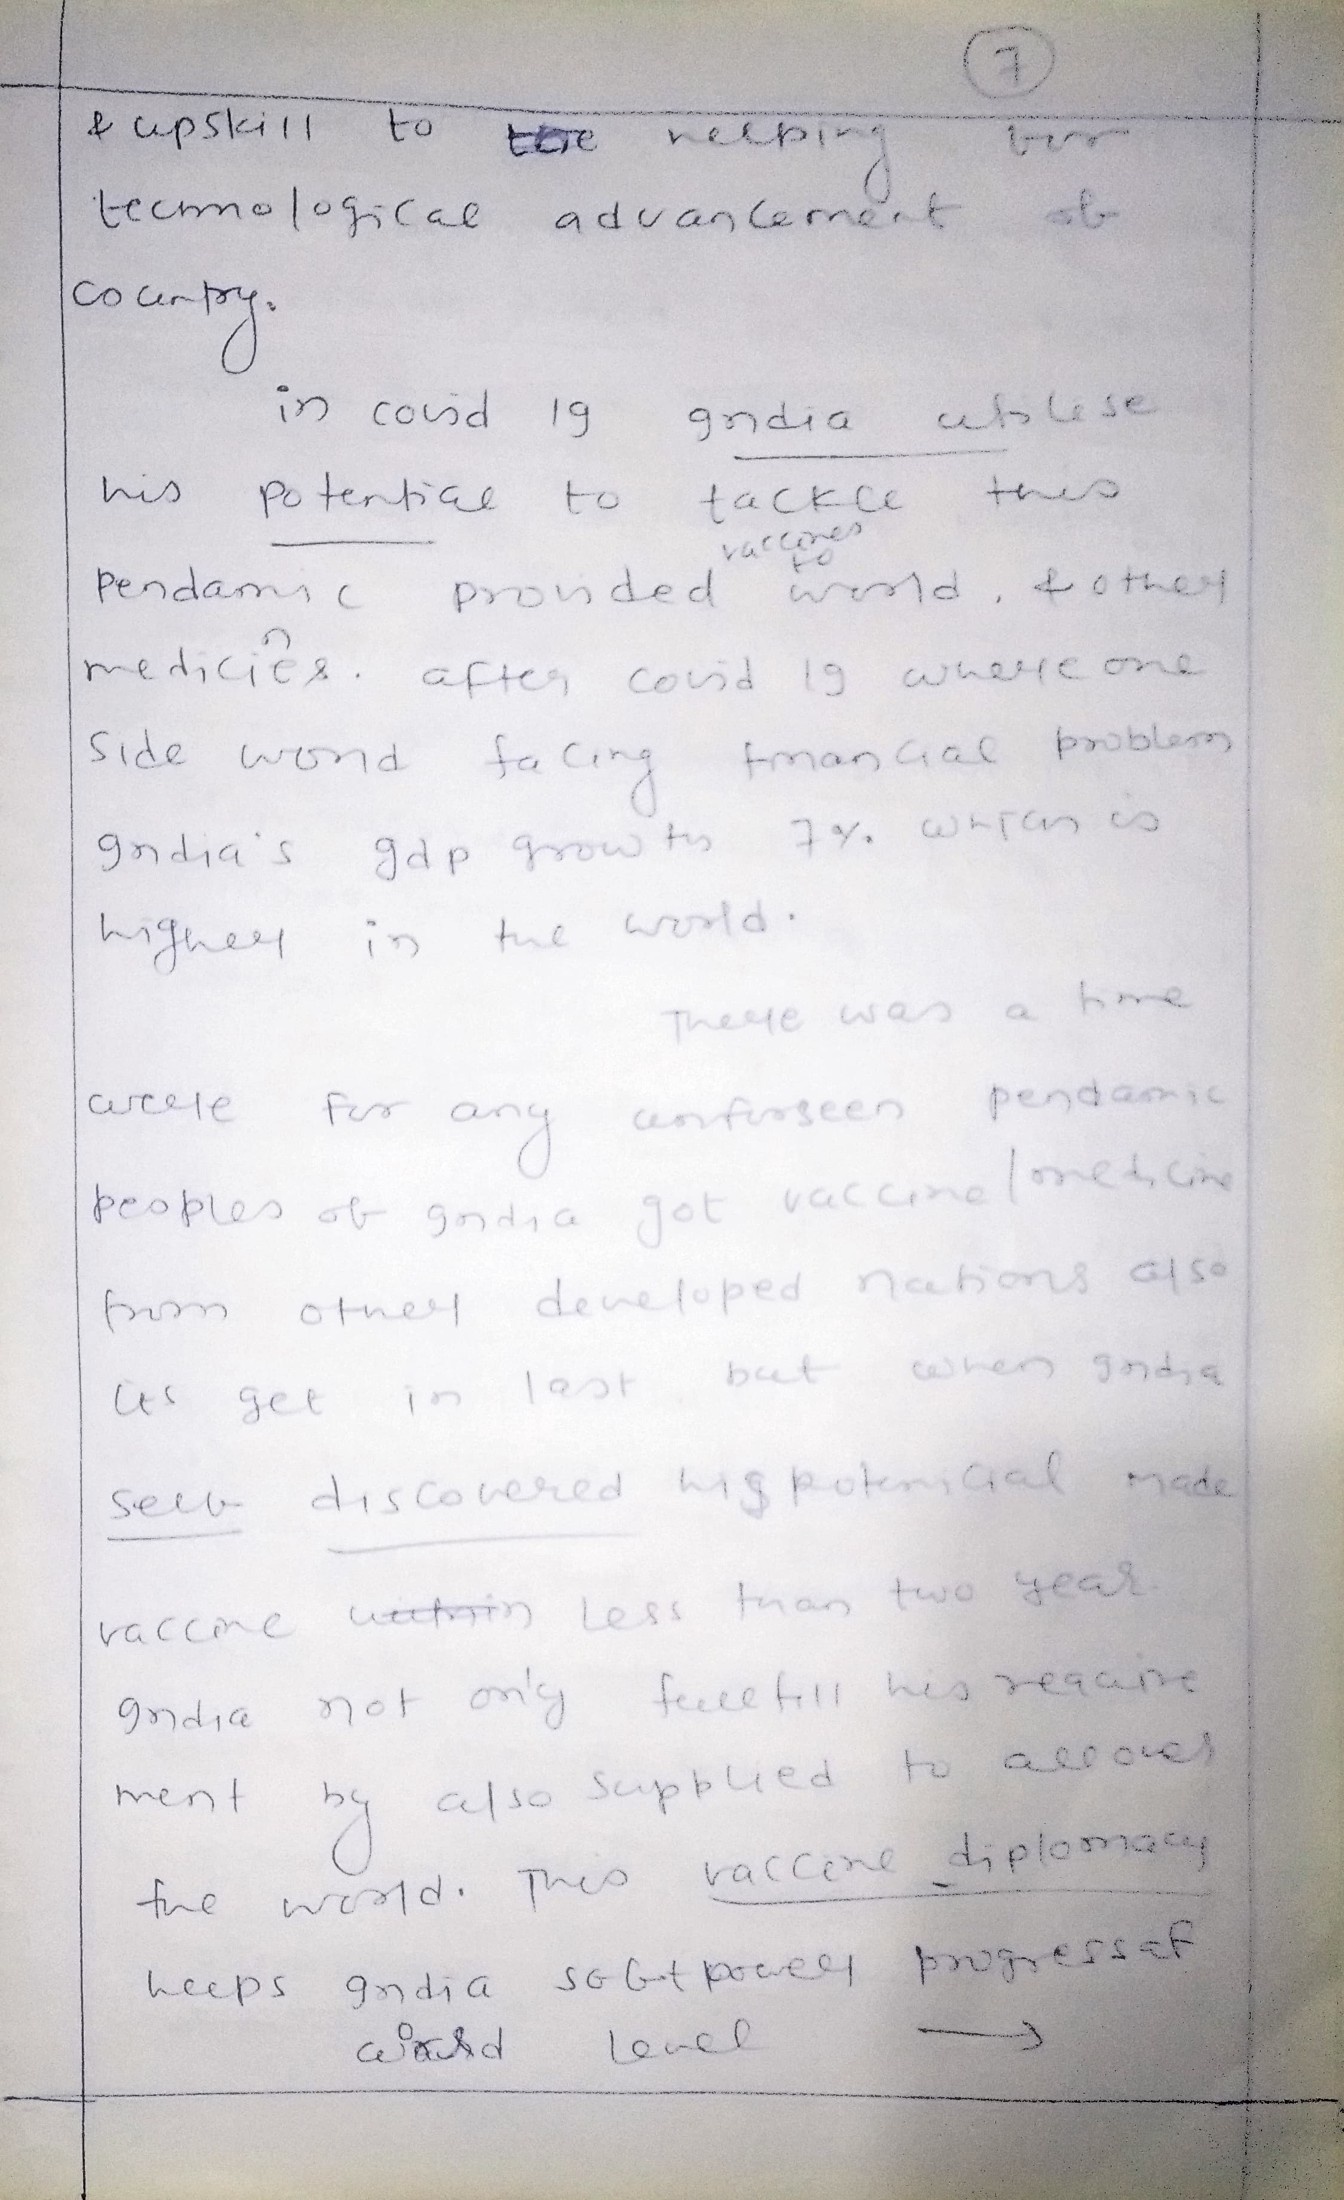 7
& upskill to the helping for
technological advancement of
country.
in covid 19 India utilese
his potential to tackle this
vaccines
pendamic provided to world, & other
medicines. after covid 19 where one
side world facing financial problem
India's gdp growth 7% which is
higher in the world.
There was a time
were for any unforseen pendamic
peoples of India got vaccine/medicine
from other developed nations also
us get in last but when India
self discovered his potenicial made
vaccine within less than two year.
India not only fullfill his require
ment by also supplied to all over
the world. This vaccine diplomacy
heeps India soft power progress at
world level →